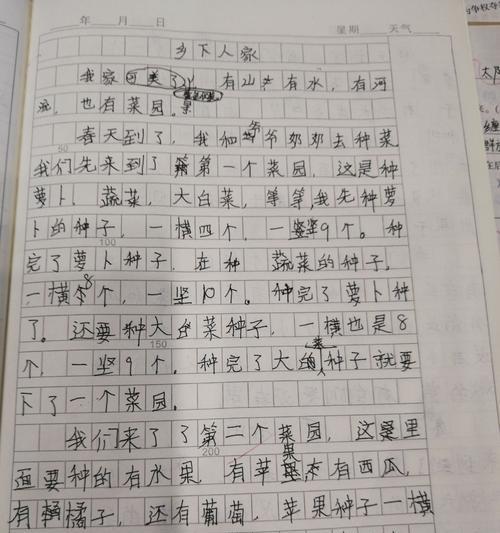 年 月 日 星期 天气
乡下人家
我家可美了 有山 有水，有河
流，也有菜园。
春天到了，我和爷爷奶奶去种菜
50
我们先来到了第一个菜园，这是种
萝卜，蔬菜，大白菜，等等我先种萝
卜的种子，一横四个，一竖9个。种
100
完了萝卜种子，在种 蔬菜的种子，
一横8个，一坚10个。种完了萝卜种
了。还要种大白菜种子，一横也是8
150
个，一坚9个。种完了大白菜种子就要
下了一个菜园。
我们来了了第二个菜园，这里
200
面要种的有水果，有苹果有西瓜，
有橘子，还有葡萄，苹果种子一横